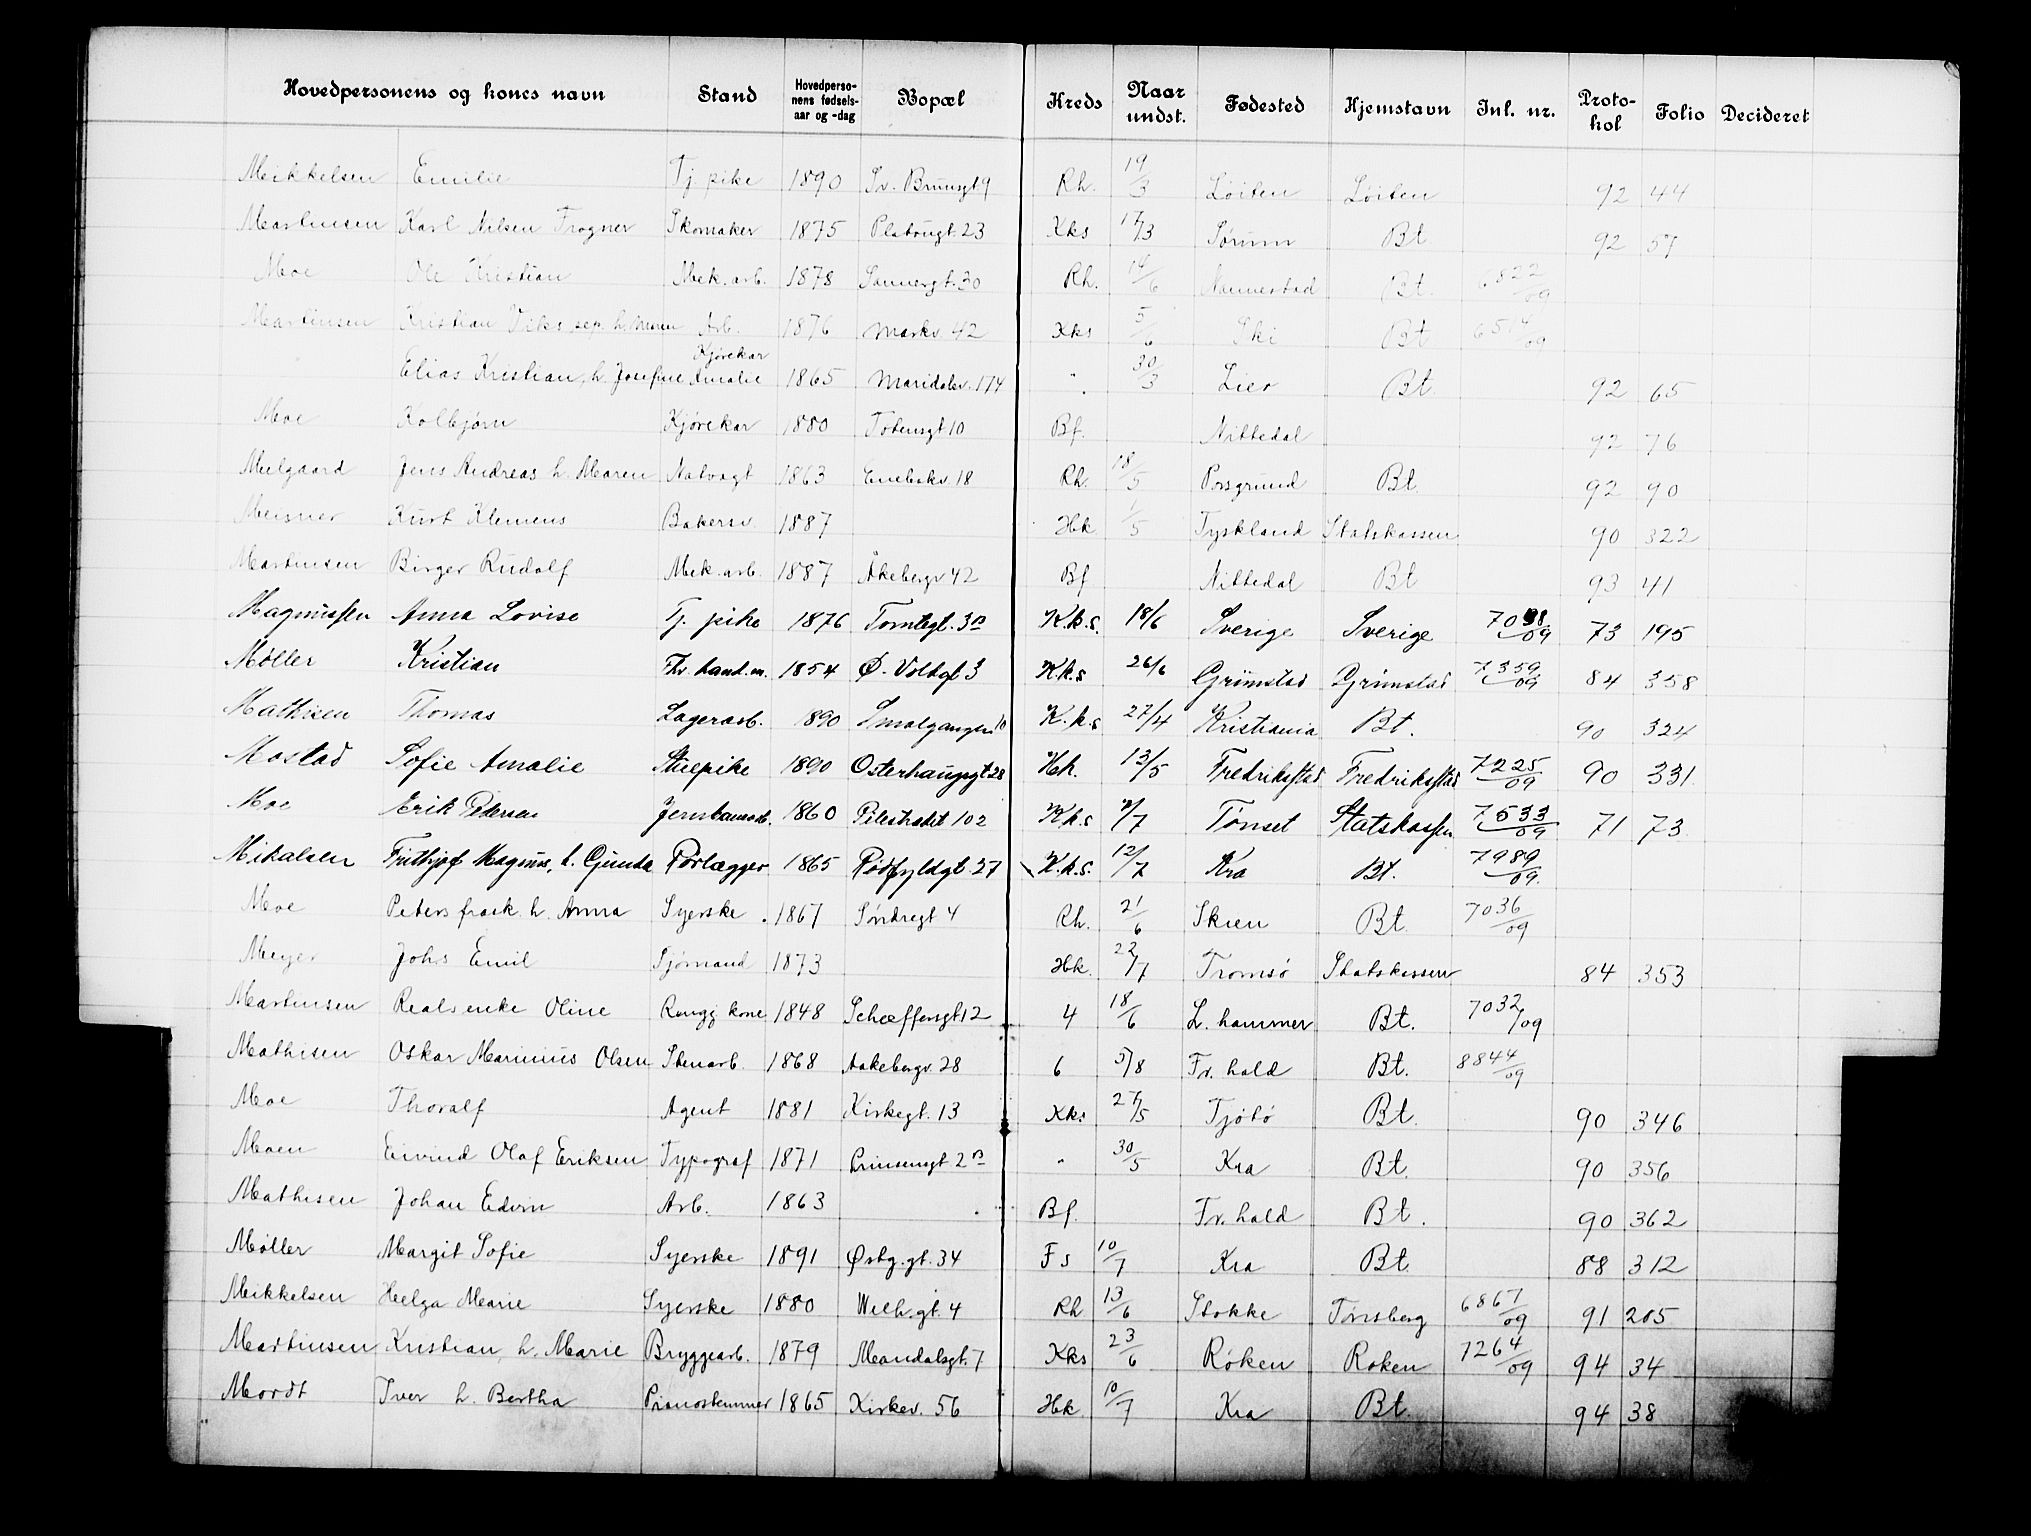 Hovedpersonens og kones navn | Stand | Hovedpersonens fødselsaar og -dag | Bopæl | Kreds | Naar undst. | Fødested | Hjemstavn | Inl. nr. | Protokol | Folio | Decideret
Mikkelsen Emilie | Tj pike | 1890 | Sv. Brunsgt 9 | Rh. | 19/3 | Løiten | Løiten | 92 | 44
Martinsen Karl Nilsen Frogner | Skomaker | 1875 | Platougt. 23 | Kks | 17/3 | Sørum | Bt | 92 | 57
Moe Ole Kristian | Mek. arb. | 1878 | Sannergt. 30 | Rh. | 14/6 | Nannestad | Bt. | 6822/09
Martinsen Kristian Viks sep. h. Maren | Arb. | 1876 | Markv. 42 | Kks | 5/6 | Ski | Bt | 6514/09
Elias Kristian, h. Josefine Amalie | Kjørekar | 1865 | Maridalsv. 174 | " | 30/3 | Lier | Bt. | 92 | 65
Moe Kolbjørn | Kjørekar | 1880 | Totensgt 10 | Bf. | Nittedal | 92 | 76
Melgaard Jens Andreas h. Maren | Natvagt | 1863 | Enebakv. 18 | Rh. | 18/5 | Porsgrund | Bt. | 92 | 90
Meisner Kurt Klemens | Bakersv. | 1887 | Hk | 1/5 | Tyskland | Statskassen | 90 | 322
Martinsen Birger Rudolf | Mek. arb. | 1887 | Åkebergv 42 | Bf | Nittedal | Bt | 93 | 41
Magnussen Anna Lovise | Tj. pike | 1876 | Tomtegt. 3 B | K.k.s. | 18/6 | Sverige | Sverige | /09 | 73 | 195
Møller Kristian | Fhv. hand.m. | 1854 | Ø. Voldgt 3 | K.k.s | 26/6 | Grimstad | Grimstad | 7359/09 | 84 | 358
Mathisen Thomas | Lagerarb. | 1890 | Smalgangen 10 | K.k.s | 27/4 | Kristiania | Bt. | 90 | 324
Mostad Sofie Amalie | Stuepike | 1890 | Osterhausgt 28 | Hk. | 13/5 | Fredriksstad | Fredriksstad | 7225/09 | 90 | 331
Moe Erik Pedersen | Jernbanearb. | 1860 | Pilestrædet 102 | K.k.s | 2/7 | Tønset | Statskassen | 7533/09 | 71 | 73
Mikalsen Frithjof Magnus, h. Gunda | Rørlægger | 1865 | Rødfyldgt. 27 | K.k.s. | 12/7 | Kra | Bt. | 7989/09.
Moe Peters frask. h. Anna | Syerske | 1867 | Søndregt 4 | Rh. | 21/6 | Skien | Bt. | 7036/09
Meyer Johs Emil | Sjømand | 1873 | Hk. | 22/7 | Tromsø | Statskassen | 84 | 353
Martinsen Reals enke Oline | Rengj kone | 1848 | Schæffersgt 12 | 4 | 18/6 | L. hammer | Bt. | 7032/09
Mathisen Oskar Marinius Olsen | Stenarb. | 1868 | Aakebergv. 28 | 6 | 5/8 | Fr. hald | Bt. | 8844/09
Moe Thoralf | Agent | 1881 | Kirkegt. 13 | Kks | 27/5 | Tjøtø | Bt. | 90 | 346
Moen Eivind Olaf Eriksen | Typograf | 1871 | Prinsensgt 2 B | " | 30/5 | Kra | Bt. | 90 | 356
Mathisen Johan Edvin | Arb. | 1863 | Bf. | Fr. hald | Bt. | 90 | 362
Møller Margit Sofie | Syerske | 1891 | Østg. gt. 34 | Fs | 10/7 | Kra | Bt. | 88 | 312
Mikkelsen Helga Marie | Syerske | 1880 | Welh. gt. 4 | Rh | 13/6 | Stokke | Tønsberg | 6867/09 | 91 | 205
Martinsen Kristian, h. Marie | Bryggearb. | 1879 | Mandalsgt. 7 | Kks | 23/6 | Røken | Røken | 7264/09 | 94 | 34
Mordt Iver h. Bertha | Pianostemmer | 1865 | Kirkev. 56 | Hk. | 10/7 | Kra | Bt. | 94 | 38